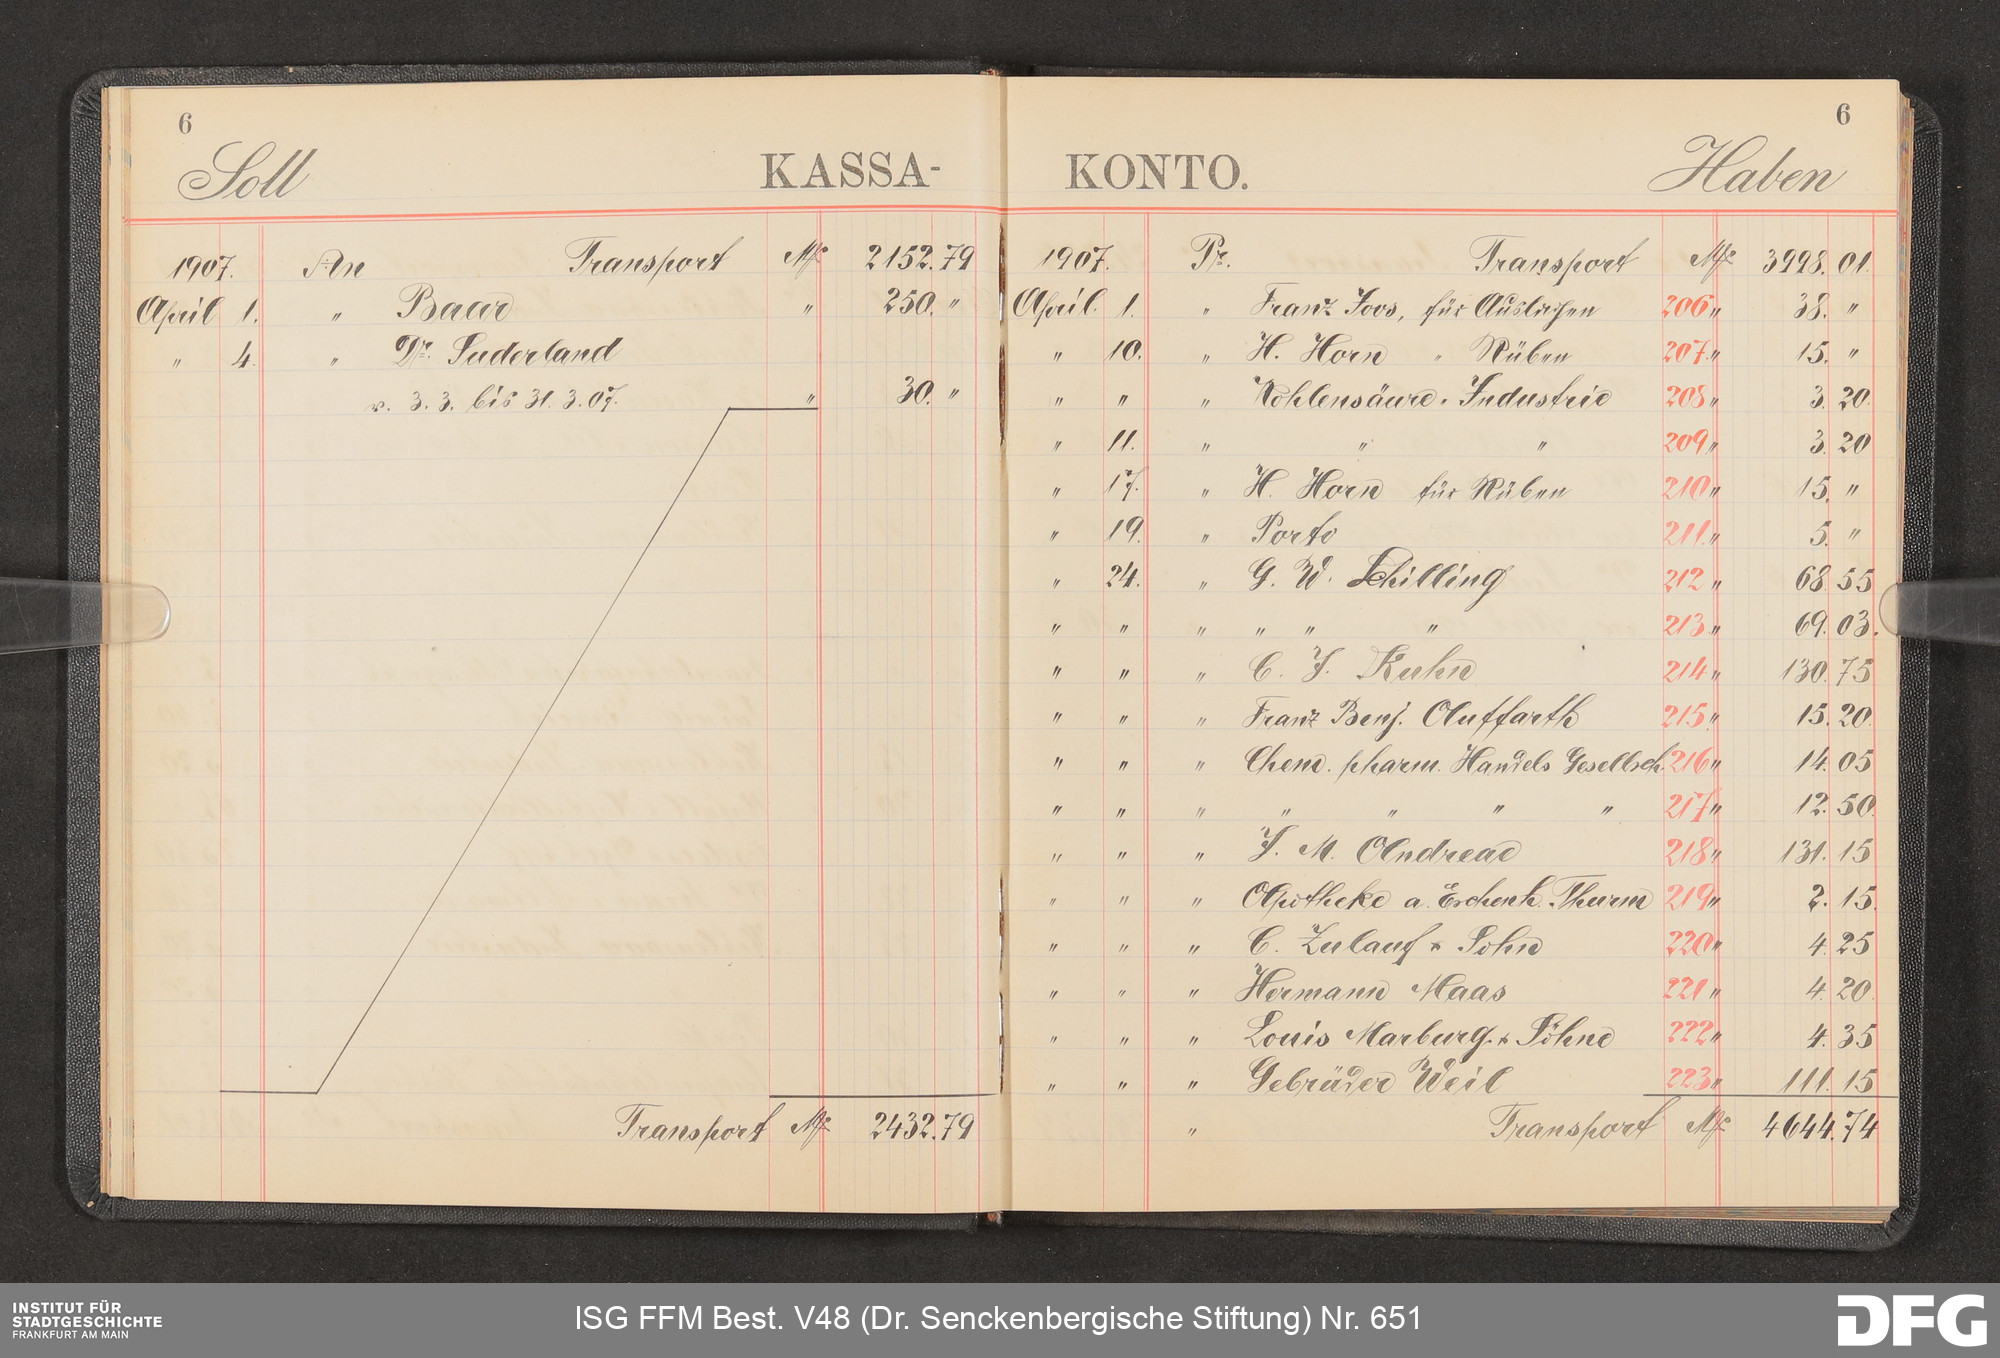 6
Soll KASSA-
1907. An Transport M 2152.79
April 1. " Baar " 250. "
" 4. " Dr. Suderland
v. 3.3. bis 31.3.07. " 30. "
Transport M 2432.79
6
KONTO. Haben
1907. Pr. Transport M 3998.01.
April 1. " Franz Joos, für 206 " 38. "
" 10. " H. Horn " Rüben 207. " 15. "
" " " Kohlensäure-Industrie 208 " 3.20.
" 11. " " " 209 " 3.20
" 17. " H. Horn für Rüben 210 " 15. "
" 19. " Porto 211. " 5. "
" 24. " G. W. Schilling 212 " 68.55
" " " " " " 213. " 69.03.
" " " C. F. Kuhn 214 " 130.75
" " " Franz Benj. Auffarth 215. " 15.20.
" " " Chem. pharm. Handels Gesellsch. 216 " 14.05
" " " " " " " 217 " 12.50.
" " " J. M. Andreae 218 " 131.15
" " " Apotheke a. Eschenh. Thurm 219 " 2.15.
" " " C. Zulauf & Sohn 220 " 4.25
" " " Hermann Maas 221 " 4.20.
" " " Louis Marburg & Söhne 222 " 4.35
" " " Gebrüder Weil 223 " 111.15
" Transport M 4644.74
INSTITUT FÜR
STADTGESCHICHTE
FRANKFURT AM MAIN
ISG FFM Best. V48 (Dr. Senckenbergische Stiftung) Nr. 651
DFG